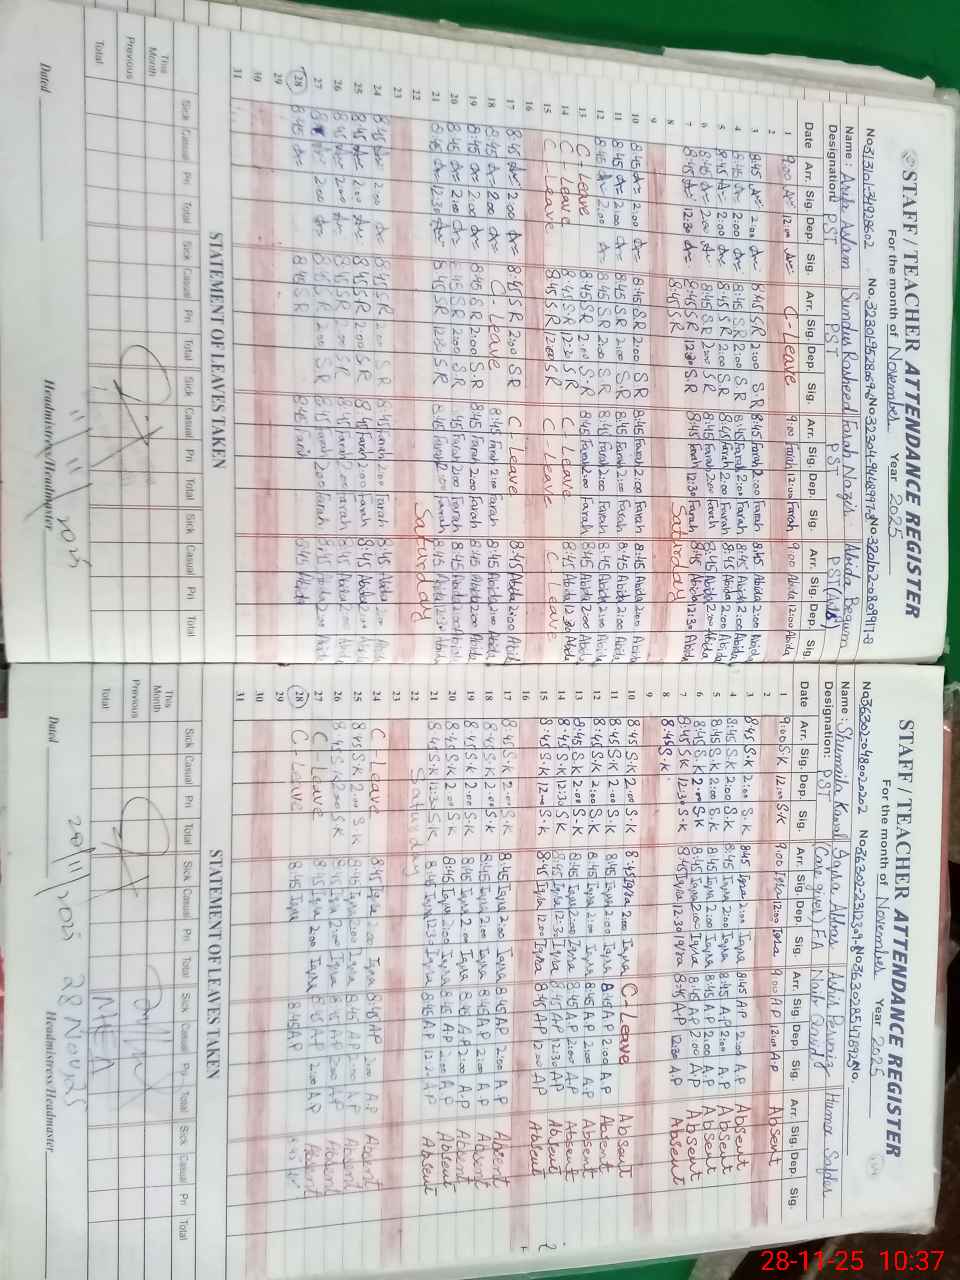 STAFF / TEACHER ATTENDANCE REGISTER
For the month of November Year 2025
Name : Arifa Aslam Sundus Rasheed Farah Nazir Abida Begum
Designation: PST PST PST PST
Date Arr. Sig. Dep. Sig. Arr. Sig. Dep. Sig. Arr. Sig. Dep. Sig. Arr. Sig. Dep. Sig.
1 9:00 12:00 C-Leave 9:00 Farah 12:00 Farah 9:00 Abida 12:00 Abida
2
3 8:45 2:00 8:45 S.R 2:00 S.R 8:45 Farah 2:00 Farah 8:45 Abida 2:00 Abida
4 8:45 2:00 8:45 S.R 2:00 S.R 8:45 Farah 2:00 Farah 8:45 Abida 2:00 Abida
5 8:45 2:00 8:45 S.R 2:00 S.R 8:45 Farah 2:00 Farah 8:45 Abida 2:00 Abida
6 8:45 2:00 8:45 S.R 2:00 S.R 8:45 Farah 2:00 Farah 8:45 Abida 2:00 Abida
7 8:45 12:30 8:45 S.R 12:30 S.R 8:45 Farah 12:30 Farah 8:45 Abida 12:30 Abida
8 8:45 S.R Saturday
9
10 8:45 2:00 8:45 S.R 2:00 S.R 8:45 Farah 2:00 Farah 8:45 Abida 2:00 Abida
11 8:45 2:00 8:45 S.R 2:00 S.R 8:45 Farah 2:00 Farah 8:45 Abida 2:00 Abida
12 8:45 2:00 8:45 S.R 2:00 S.R 8:45 Farah 2:00 Farah 8:45 Abida 2:00 Abida
13 C-Leave 8:45 S.R 2:00 S.R 8:45 Farah 2:00 Farah 8:45 Abida 2:00 Abida
14 C-Leave 8:45 S.R C-Leave 8:45 Abida 12:30 Abida
15 C-Leave 8:45 S.R 12:00 S.R C-Leave C-Leave
16
17 8:45 2:00 8:45 S.R 2:00 S.R C-Leave 8:45 Abida 2:00 Abida
18 8:45 2:00 C-Leave 8:45 Farah 2:00 Farah 8:45 Abida 2:00 Abida
19 8:45 2:00 8:45 S.R 2:00 S.R 8:45 Farah 2:00 Farah 8:45 Abida 2:00 Abida
20 8:45 2:00 8:45 S.R 2:00 S.R 8:45 Farah 2:00 Farah 8:45 Abida 2:00 Abida
21 8:45 12:30 8:45 S.R 12:30 S.R 8:45 Farah Farah 8:45 Abida 12:30 Abida
22 Saturday
23
24 8:45 2:00 8:45 S.R 2:00 S.R 8:45 Farah 2:00 Farah 8:45 Abida 2:00 Abida
25 8:45 2:00 8:45 S.R 2:00 S.R 8:45 Farah 2:00 Farah 8:45 Abida 2:00 Abida
26 8:45 2:00 8:45 S.R 2:00 S.R 8:45 Farah 2:00 Farah 8:45 Abida 2:00 Abida
27 8:45 2:00 8:45 S.R 2:00 S.R 8:45 Farah 2:00 Farah 8:45 Abida 2:00 Abida
28 8:45 8:45 S.R 8:45 Farah 8:45 Abida
29
30
31
STATEMENT OF LEAVES TAKEN
Sick Casual Pri Total Sick Casual Pri Total Sick Casual Pri Total Sick Casual Pri Total
This Month
Previous
Total
Dated Headmistress/Headmaster
STAFF / TEACHER ATTENDANCE REGISTER
For the month of November Year 2025
Name : Shumaila Kanwal Iqra Abbas Asif Pervaiz Humer Safder
Designation: PST (Care giver) FA Naib Qasid
Date Arr. Sig. Dep. Sig. Arr. Sig. Dep. Sig. Arr. Sig. Dep. Sig. Arr. Sig. Dep. Sig.
1 9:00 S.K 12:00 S.K 9:00 Iqra 12:00 Iqra 9:00 A.P 12:00 A.P Absent
2
3 8:45 S.K 2:00 S.K 8:45 Iqra 2:00 Iqra 8:45 A.P 2:00 A.P Absent
4 8:45 S.K 2:00 S.K 8:45 Iqra 2:00 Iqra 8:45 A.P 2:00 A.P Absent
5 8:45 S.K 2:00 S.K 8:45 Iqra 2:00 Iqra 8:45 A.P 2:00 A.P Absent
6 8:45 S.K 2:00 S.K 8:45 Iqra 2:00 Iqra 8:45 A.P 2:00 A.P Absent
7 8:45 S.K 12:30 S.K 8:45 Iqra 12:30 Iqra 8:45 A.P 12:30 A.P Absent
8 8:45 S.K
9
10 8:45 S.K 2:00 S.K 8:45 Iqra 2:00 Iqra C-Leave Absent
11 8:45 S.K 2:00 S.K 8:45 Iqra 2:00 Iqra 8:45 A.P 2:00 A.P Absent
12 8:45 S.K 2:00 S.K 8:45 Iqra 2:00 Iqra 8:45 A.P 2:00 A.P Absent
13 8:45 S.K 2:00 S.K 8:45 Iqra 2:00 Iqra 8:45 A.P 2:00 A.P Absent
14 8:45 S.K 12:30 S.K 8:45 Iqra 12:30 Iqra 8:45 A.P 12:30 A.P Absent
15 8:45 S.K 12:00 S.K 8:45 Iqra 12:00 Iqra 8:45 A.P 12:00 A.P Absent
16
17 8:45 S.K 2:00 S.K 8:45 Iqra 2:00 Iqra 8:45 A.P 2:00 A.P Absent
18 8:45 S.K 2:00 S.K 8:45 Iqra 2:00 Iqra 8:45 A.P 2:00 A.P Absent
19 8:45 S.K 2:00 S.K 8:45 Iqra 2:00 Iqra 8:45 A.P 2:00 A.P Absent
20 8:45 S.K 2:00 S.K 8:45 Iqra 2:00 Iqra 8:45 A.P 2:00 A.P Absent
21 8:45 S.K 12:30 S.K 8:45 Iqra 12:30 Iqra 8:45 A.P 12:30 A.P Absent
22 Saturday
23
24 C-Leave 8:45 Iqra 2:00 Iqra 8:45 A.P 2:00 A.P Absent
25 8:45 S.K 2:00 S.K 8:45 Iqra 2:00 Iqra 8:45 A.P 2:00 A.P Absent
26 8:45 S.K 2:00 S.K 8:45 Iqra 2:00 Iqra 8:45 A.P 2:00 A.P Absent
27 C-Leave 8:45 Iqra 2:00 Iqra 8:45 A.P 2:00 A.P Absent
28 C-Leave 8:45 Iqra 8:45 A.P
29
30
31
STATEMENT OF LEAVES TAKEN
Sick Casual Pri Total Sick Casual Pri Total Sick Casual Pri Total Sick Casual Pri Total
This Month
Previous
Total
MEA
28 Nov, 25
Dated Headmistress/Headmaster
28-11-25 10:37